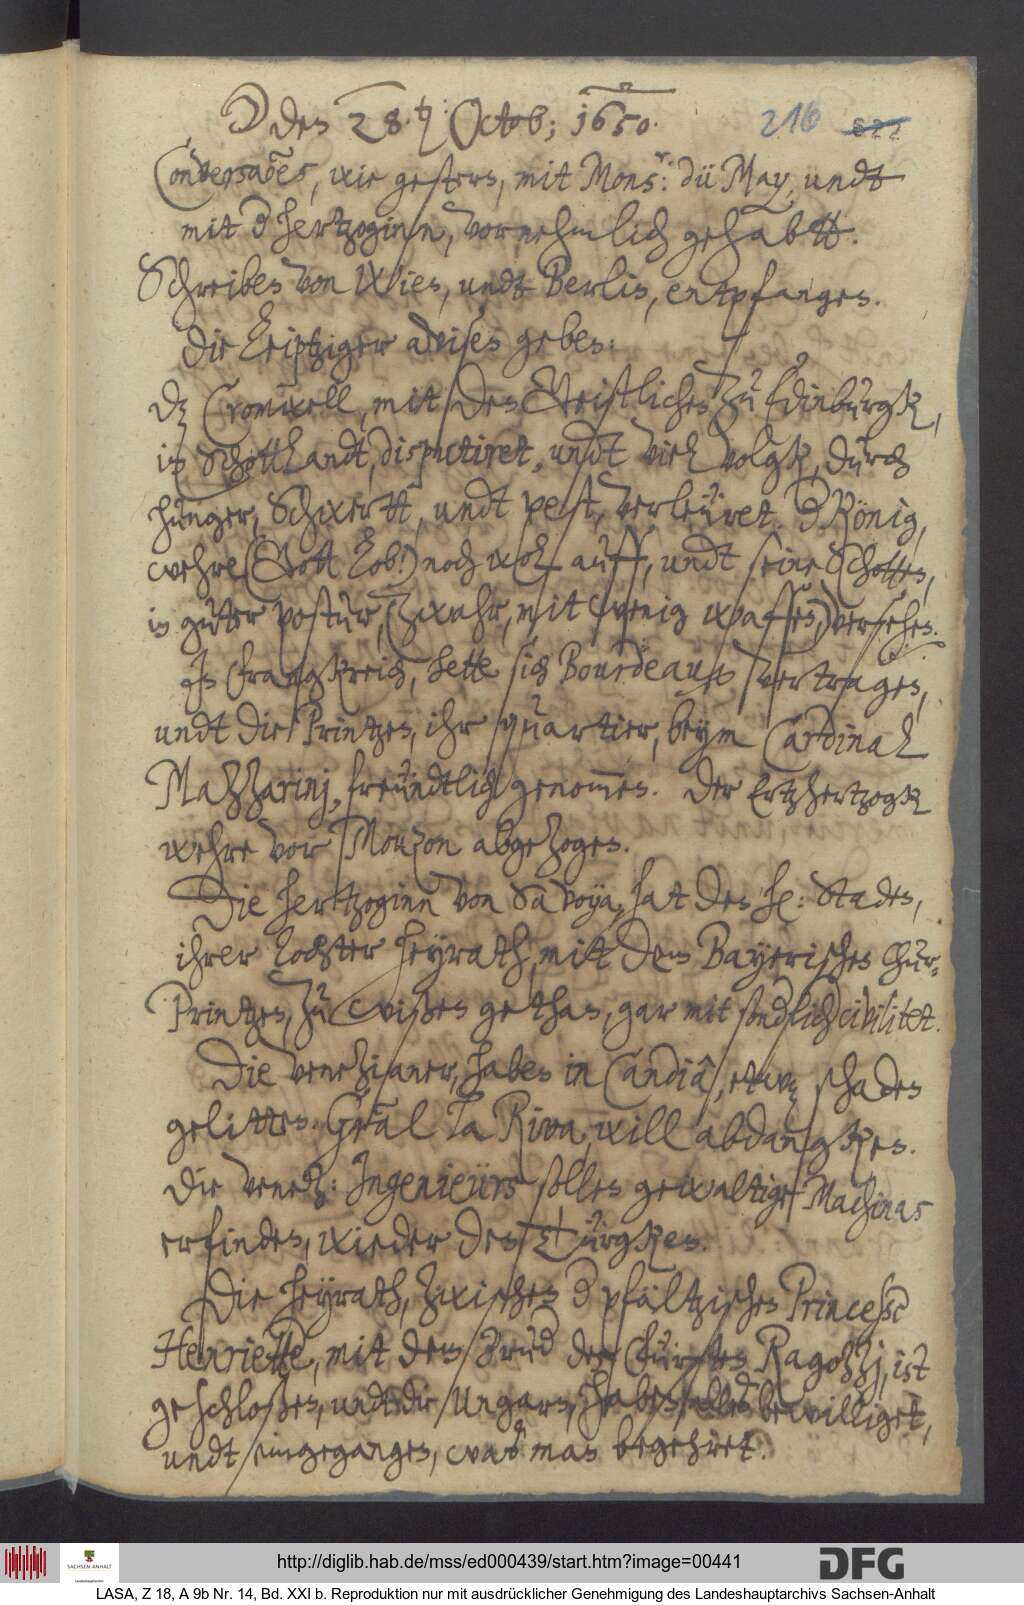 ☽ den 28.ten: Octob; 1650. 216 622
Conversações, wie gestern, mit Monsr: dü May, undt
mit der hertzoginn, vornehmlich gehabtt.
Schreiben von Wien, undt Berlin, entpfangen.
Die Leiptziger avisen geben:
dz Cromwell, mit den Geistlichen zu Edinburgk,
in Schottlandt, disputiret, undt viel volgk, durch
hunger, Schwertt, undt pest, verleüret. der König,
wehre (Gott lob!) noch wol auff, undt seine Schotten,
in guter postur, (zwahr, mit wenig waffen,) versehen.
In Frangkreich, hette sich Bourdeaux vertragen,
undt die Printzen, ihr quartier, beym Cardinal
Mazzarinj, freündtlich genommen. Der Ertzhertzogk
wehre vor Mouzon abgezogen.
Die hertzoginn von Savoya, hat den he: Staden,
ihrer Tochter heyrath, mitt dem Bayerischen Chur-
Printzen, zu wißen gethan, gar mit sonderlicher civilitet.
Die Venezianer, haben in Candiâ, etwaz schaden
gelitten. General La Riva, will abdangken.
Die Venez: Ingenieürs sollen gewaltige Machinas
erfinden, wieder den Türgken.
Die heyrath, zwischen der pfältzischen Princeßin
Henriette, mit dem Bruder des Fürsten Ragozzj, ist
geschloßen, undt die Ungarn, haben alles bewilliget,
undt eingegangen, waß man begehret.
http://diglib.hab.de/mss/ed000439/start.htm?image=00441
SACHSEN-ANHALT
DFG
LASA, Z 18, A 9b Nr. 14, Bd. XXI b. Reproduktion nur mit ausdrücklicher Genehmigung des Landeshauptarchivs Sachsen-Anhalt